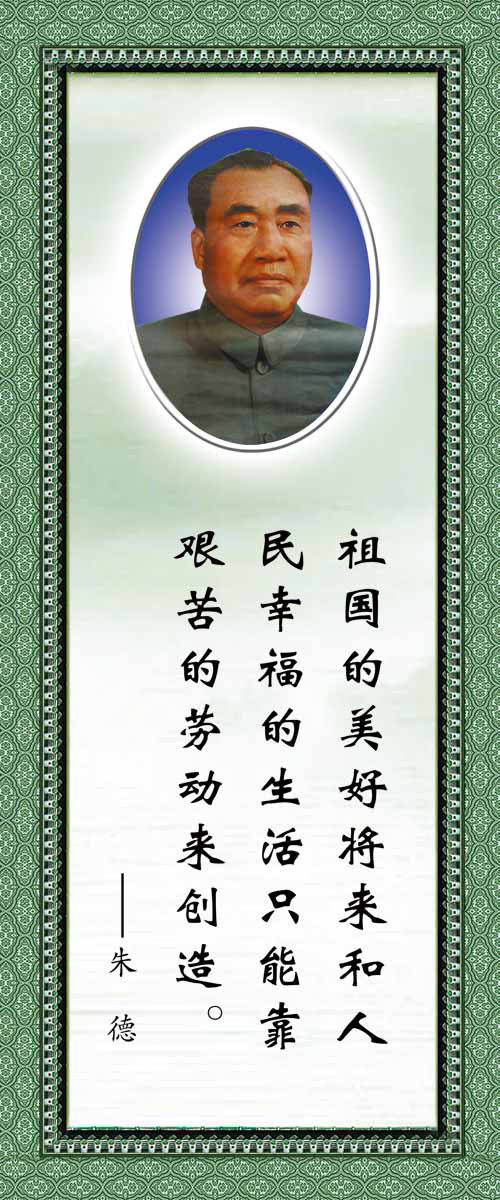 祖国的美好将来和人
民幸福的生活只能靠
艰苦的劳动来创造。
——朱德